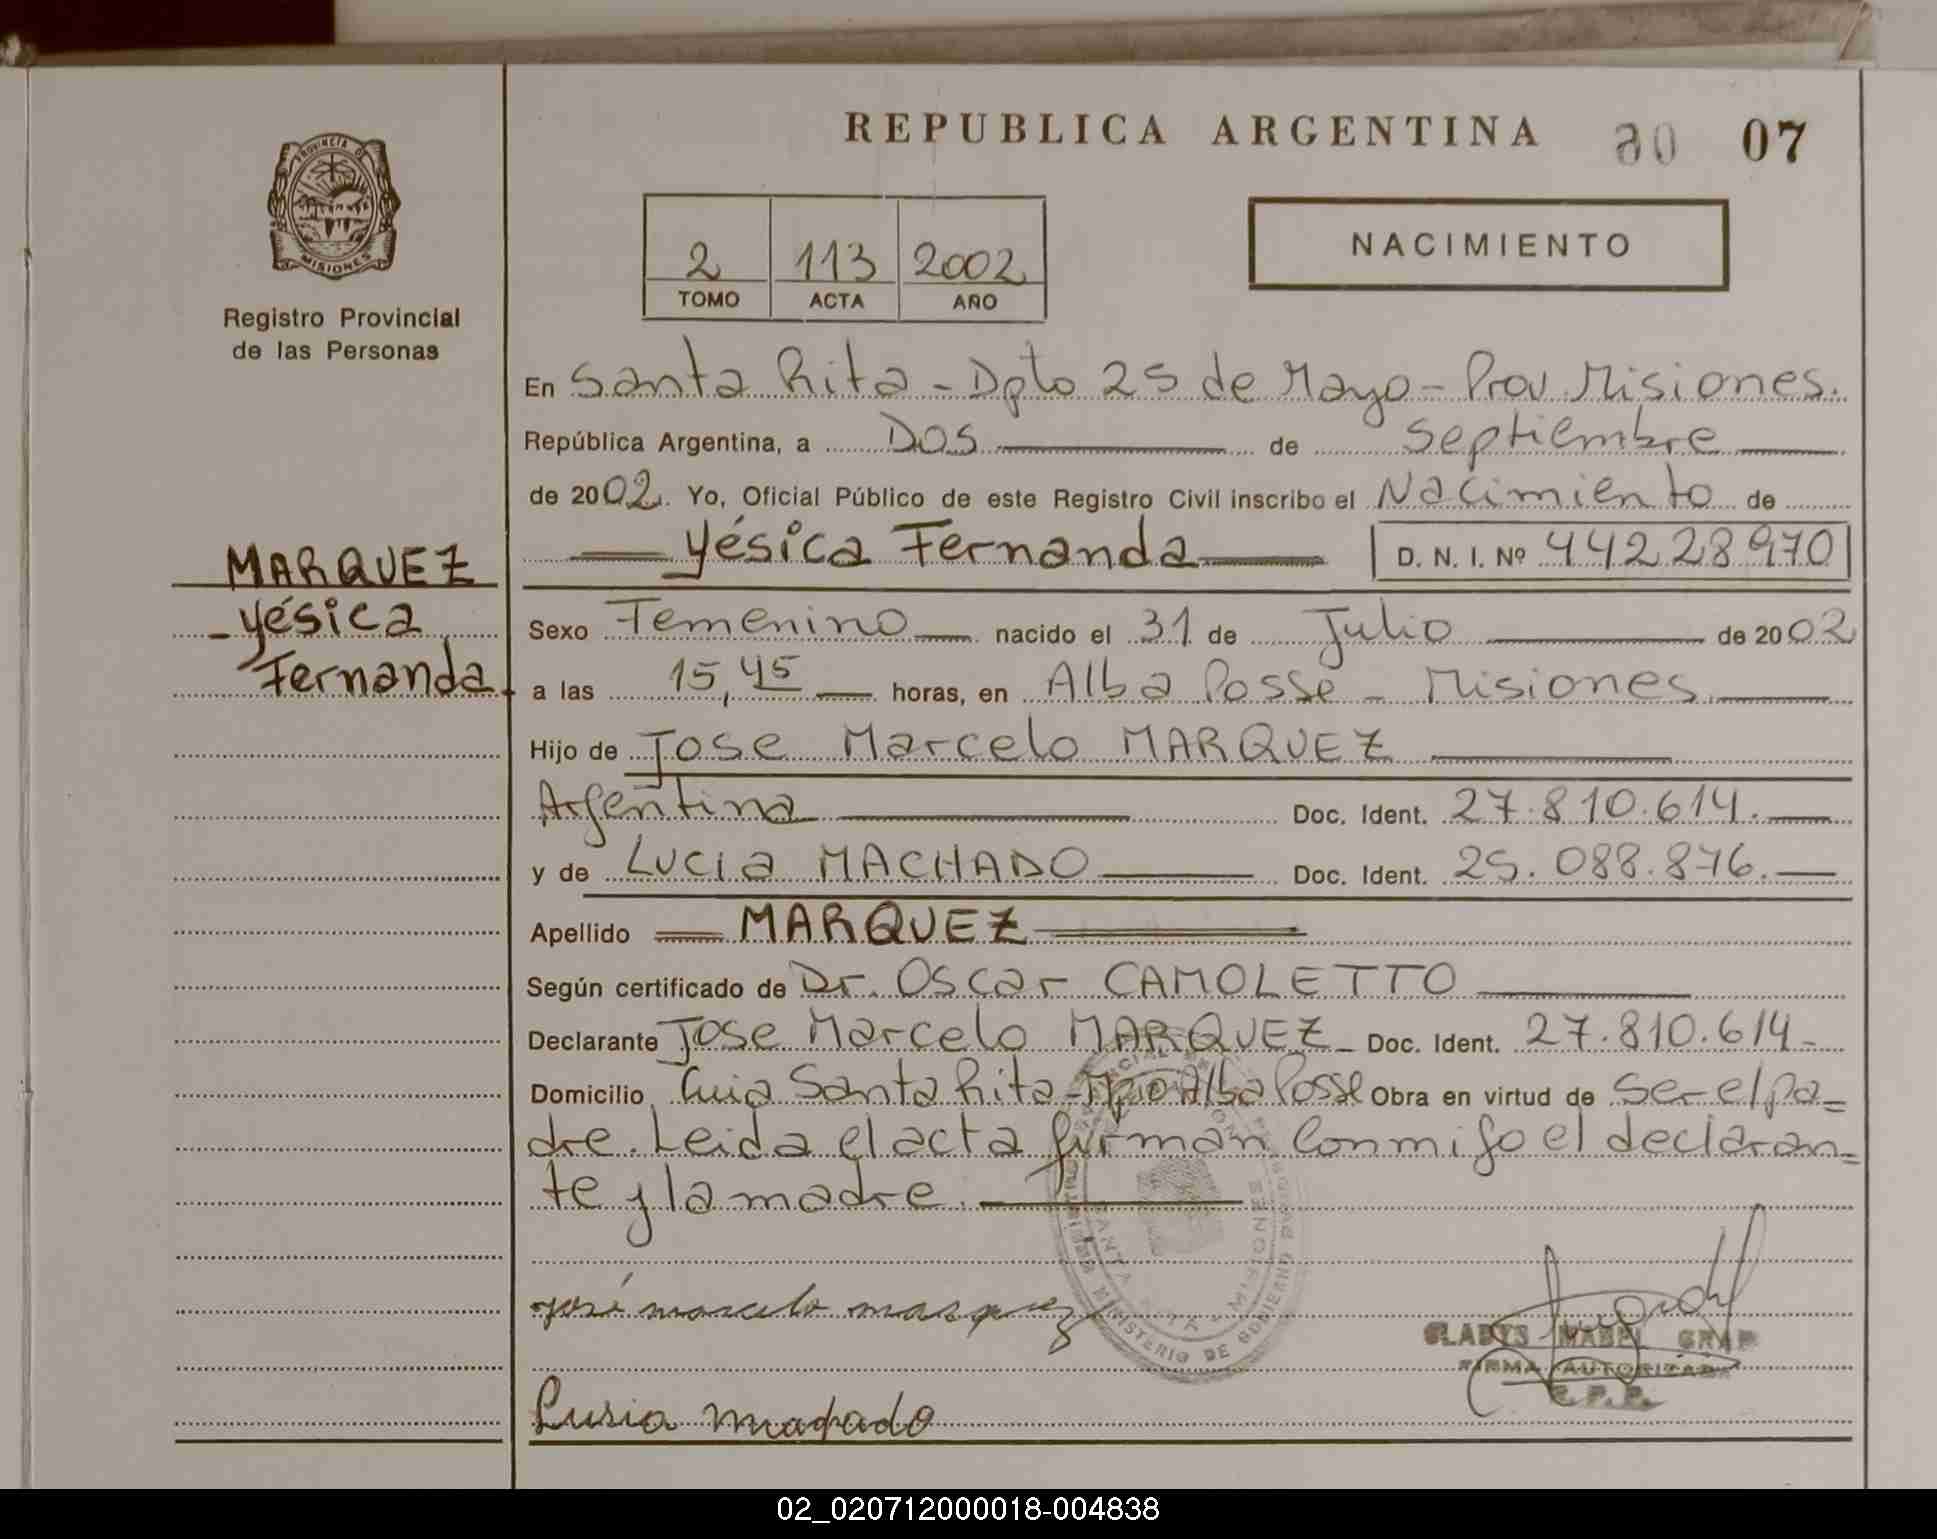 REPUBLICA ARGENTINA 07
PROVINCIA DE
MISIONES
Registro Provincial
de las Personas
2 113 2002
TOMO ACTA AÑO
NACIMIENTO
En Santa Rita - Dpto 25 de Mayo - Prov. Misiones.
República Argentina, a Dos de Septiembre
de 2002. Yo, Oficial Público de este Registro Civil inscribo el Nacimiento de
Yésica Fernanda D. N. I. Nº 44228970
MARQUEZ
Yésica
Fernanda
Sexo Femenino nacido el 31 de Julio de 2002
a las 15,45 horas, en Alba Posse - Misiones
Hijo de Jose Marcelo MARQUEZ
Argentina Doc. Ident. 27.810.614.
y de Lucia MACHADO Doc. Ident. 25.088.876.
Apellido MARQUEZ
Según certificado de Dr. Oscar CAMOLETTO
Declarante Jose Marcelo MARQUEZ - Doc. Ident. 27.810.614-
Domicilio Santa Rita - Alba Posse Obra en virtud de ser el pa=
dre. Leida el acta firman conmigo el declaran=
te y la madre.
MINISTERIO DE GOBIERNO
SANTA RITA - MISIONES
José marcelo marquez
GLADYS MABEL
FIRMA AUTORIZADA
R.P.P.
02_020712000018-004838